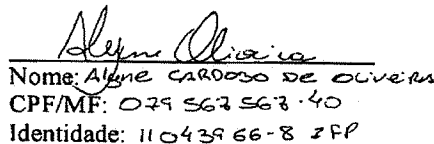 Alyne Oliveira
Nome: Alyne CARDOSO DE OLIVEIRA
CPF/MF: 079 567 567-40
Identidade: 11043966-8 IFP